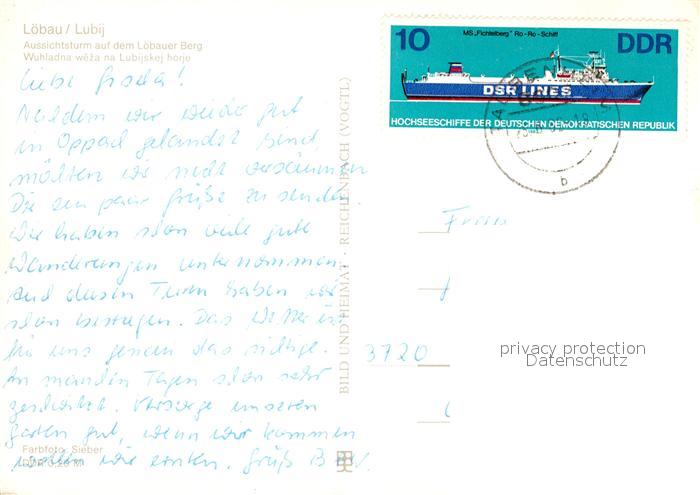 Löbau / Lubij
Aussichtsturm auf dem Löbauer Berg
Wuhladna wěža na Lubijskej horje
Liebe Gisela!
Nachdem wir wieder gut
in Oppach gelandet sind,
möchten wir nicht versäumen
Dir ein paar Grüße zu senden.
Wir haben schon viele gute
Wanderungen unternommen.
Auch diesen Turm haben wir
schon bestiegen. Das Wetter ist
für uns genau das richtige.
An manchen Tagen schon sehr
. Versorge unseren
Garten gut, wenn wir kommen
wollen wir ernten. Gruß B
Farbfoto: Sieber
DDR 0,20 M
BILD UND HEIMAT · REICHENBACH (VOGTL)
MS „Fichtelberg" Ro-Ro-Schiff
10 DDR
DSR LINES
HOCHSEESCHIFFE DER DEUTSCHEN DEMOKRATISCHEN REPUBLIK
b
3720
privacy protection
Datenschutz